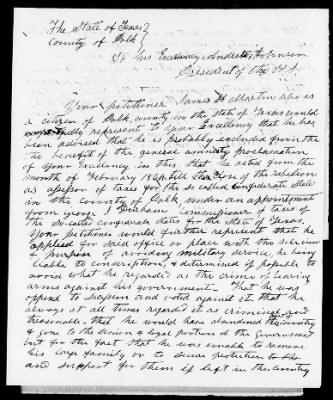 The State of Texas
County of Polk
To his Excellency Andrew Johnson
President of the U.S.
Your petitioner James H Martin who is
a citizen of Polk county in the State of Texas would
respectfully represent to your Excellency that he has
been advised that he is probably excluded from the
the benefit of the general amnesty proclamation
of your Excellency in this that he acted from the
month of February 1864 till the close of the rebelion
as assessor of taxes for the so called Confederate States
in the county of Polk, under an appointment
from George J. Durham commissioner of taxes of
the so called confederate States for the State of Texas.
Your petitioner would further represent that he
applied for said office or place with the sole view
& purpose of avoiding military service, he being
liable to conscription, & determined if possible to
avoid what he regarded as the crime of bearing
arms against his government. That he was
opposed to secession and voted against it, that he
always at all times regarded it as criminal and
treasonable, that he would have abandoned the country
& gone to the loyal portion of the Government
but for the fact that he was unable to remove
his large family or to secure protection to
and support for them if left in the country